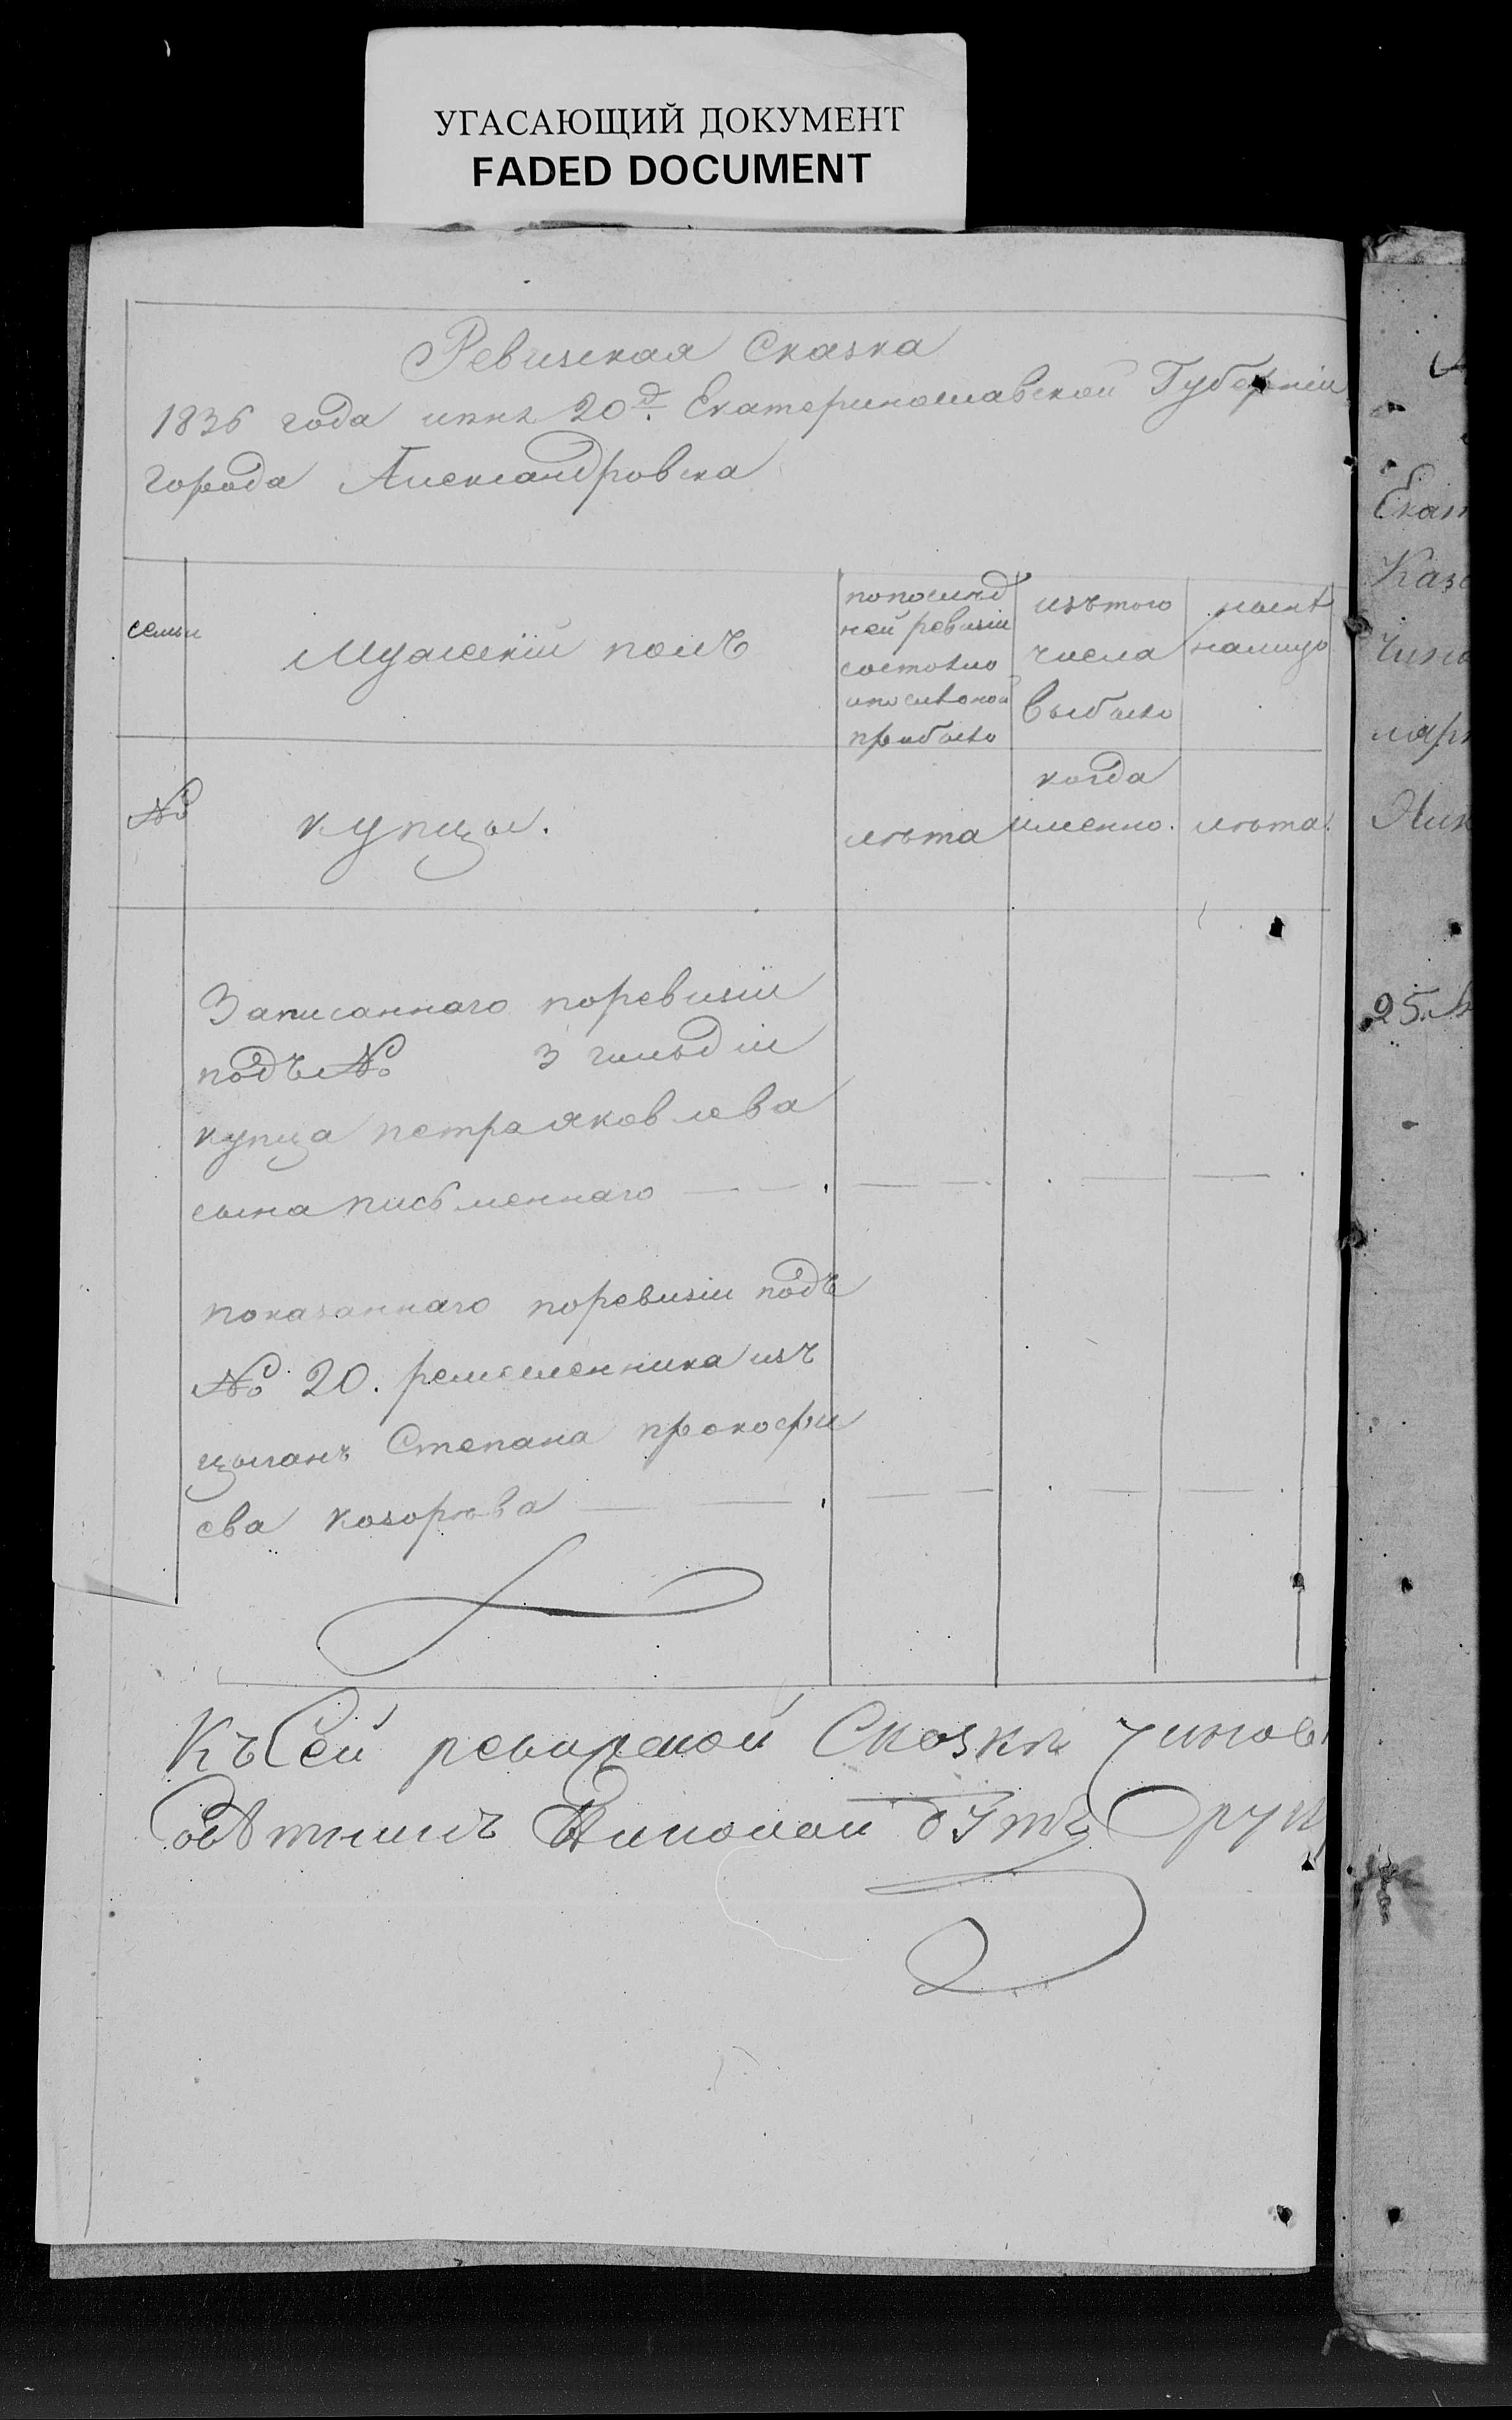 УГАСАЮЩИЙ ДОКУМЕНТ
FADED DOCUMENT
Ревизская Сказка
1836 года июня 20д. Екатеринославской Губернии
города Александровска
семьи
Мужескiй полъ
попослѣд
ней ревизiи
состояло
ипослѣоной
прибыло
изътого
числа
выбыло
нынѣ
налицо
№
купцы.
лѣта
когда
именно.
лѣта.
Записаннаго поревизiи
подъ № 3 гильдiи
купца петра яковлева
сына письменнаго
показаннаго поревизiи подъ
№ 20. ремесленника изъ
цыганъ Степана прокофи
ева козорѣва
Къ Сей ревизской Сказки
Николай
Екат
Каз
25.